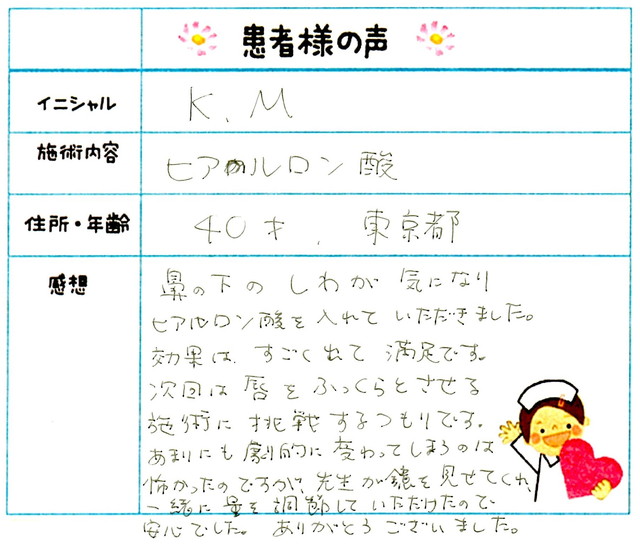 患者様の声
イニシャル K. M
施術内容 ヒアルロン酸
住所・年齢 40才、東京都
感想
鼻の下の しわが 気になり
ヒアルロン酸を入れて いただきました。
効果は、すごくでて 満足です。
次回は 唇を ふっくらとさせる
施術に 挑戦するつもりです。
あまりにも劇的に 変わってしまうのは
怖かったのですが、先生が鏡を見せてくれ、
一緒に 量を 調節して いただけたので
安心でした。 ありがとうございました。